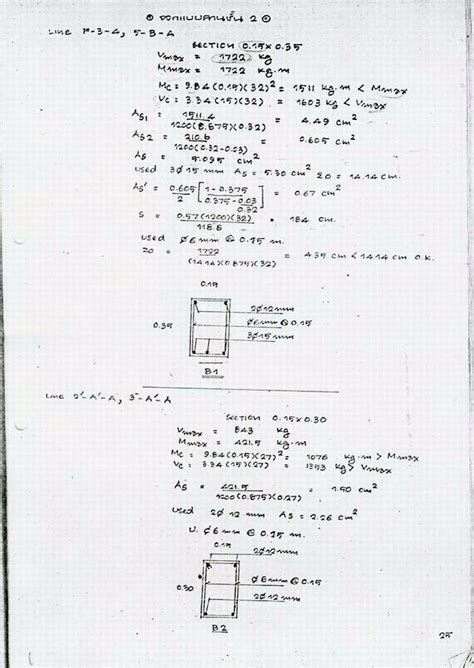 ⊙ ออกแบบคานชั้น 2 ⊙
LINE F-3-4, 5-B-A
SECTION 0.15 × 0.35
Vmax = 1722 kg
Mmax = 1722 kg.m
Mc = 9.84(0.15)(32)² = 1511 kg.m < Mmax
Vc = 3.34(15)(32) = 1603 kg < Vmax
As1 = 1511.4 / 1200(0.875)(0.32) = 4.49 cm²
As2 = 210.6 / 1200(0.32-0.03) = 0.605 cm²
As = 5.095 cm²
used 3Ø15 mm As = 5.30 cm² Σo = 14.14 cm.
As' = 0.605/2 [1-0.375 / 0.375-0.03/0.32] = 0.67 cm²
S = 0.57(1200)(32) / 118.8 = 184 cm.
used Ø6mm @ 0.15 m.
Σo = 1722 / (14.14)(0.875)(32) = 4.35 cm < 14.14 cm O.K.
0.15
2Ø12mm
0.35
Ø6mm@0.15
3Ø15mm
B1
LINE 2'-A'-A, 3'-A'-A
SECTION 0.15×0.30
Vmax = 843 kg
Mmax = 421.5 kg.m
Mc = 9.84(0.15)(27)² = 1076 kg.m > Mmax
Vc = 3.34(15)(27) = 1353 kg > Vmax
As = 421.5 / 1200(0.875)(0.27) = 1.50 cm²
used 2Ø12 mm As = 2.26 cm²
U. Ø6mm @ 0.15 m.
0.15
2Ø12mm
0.30
Ø6mm@0.15
2Ø12mm
B2
25